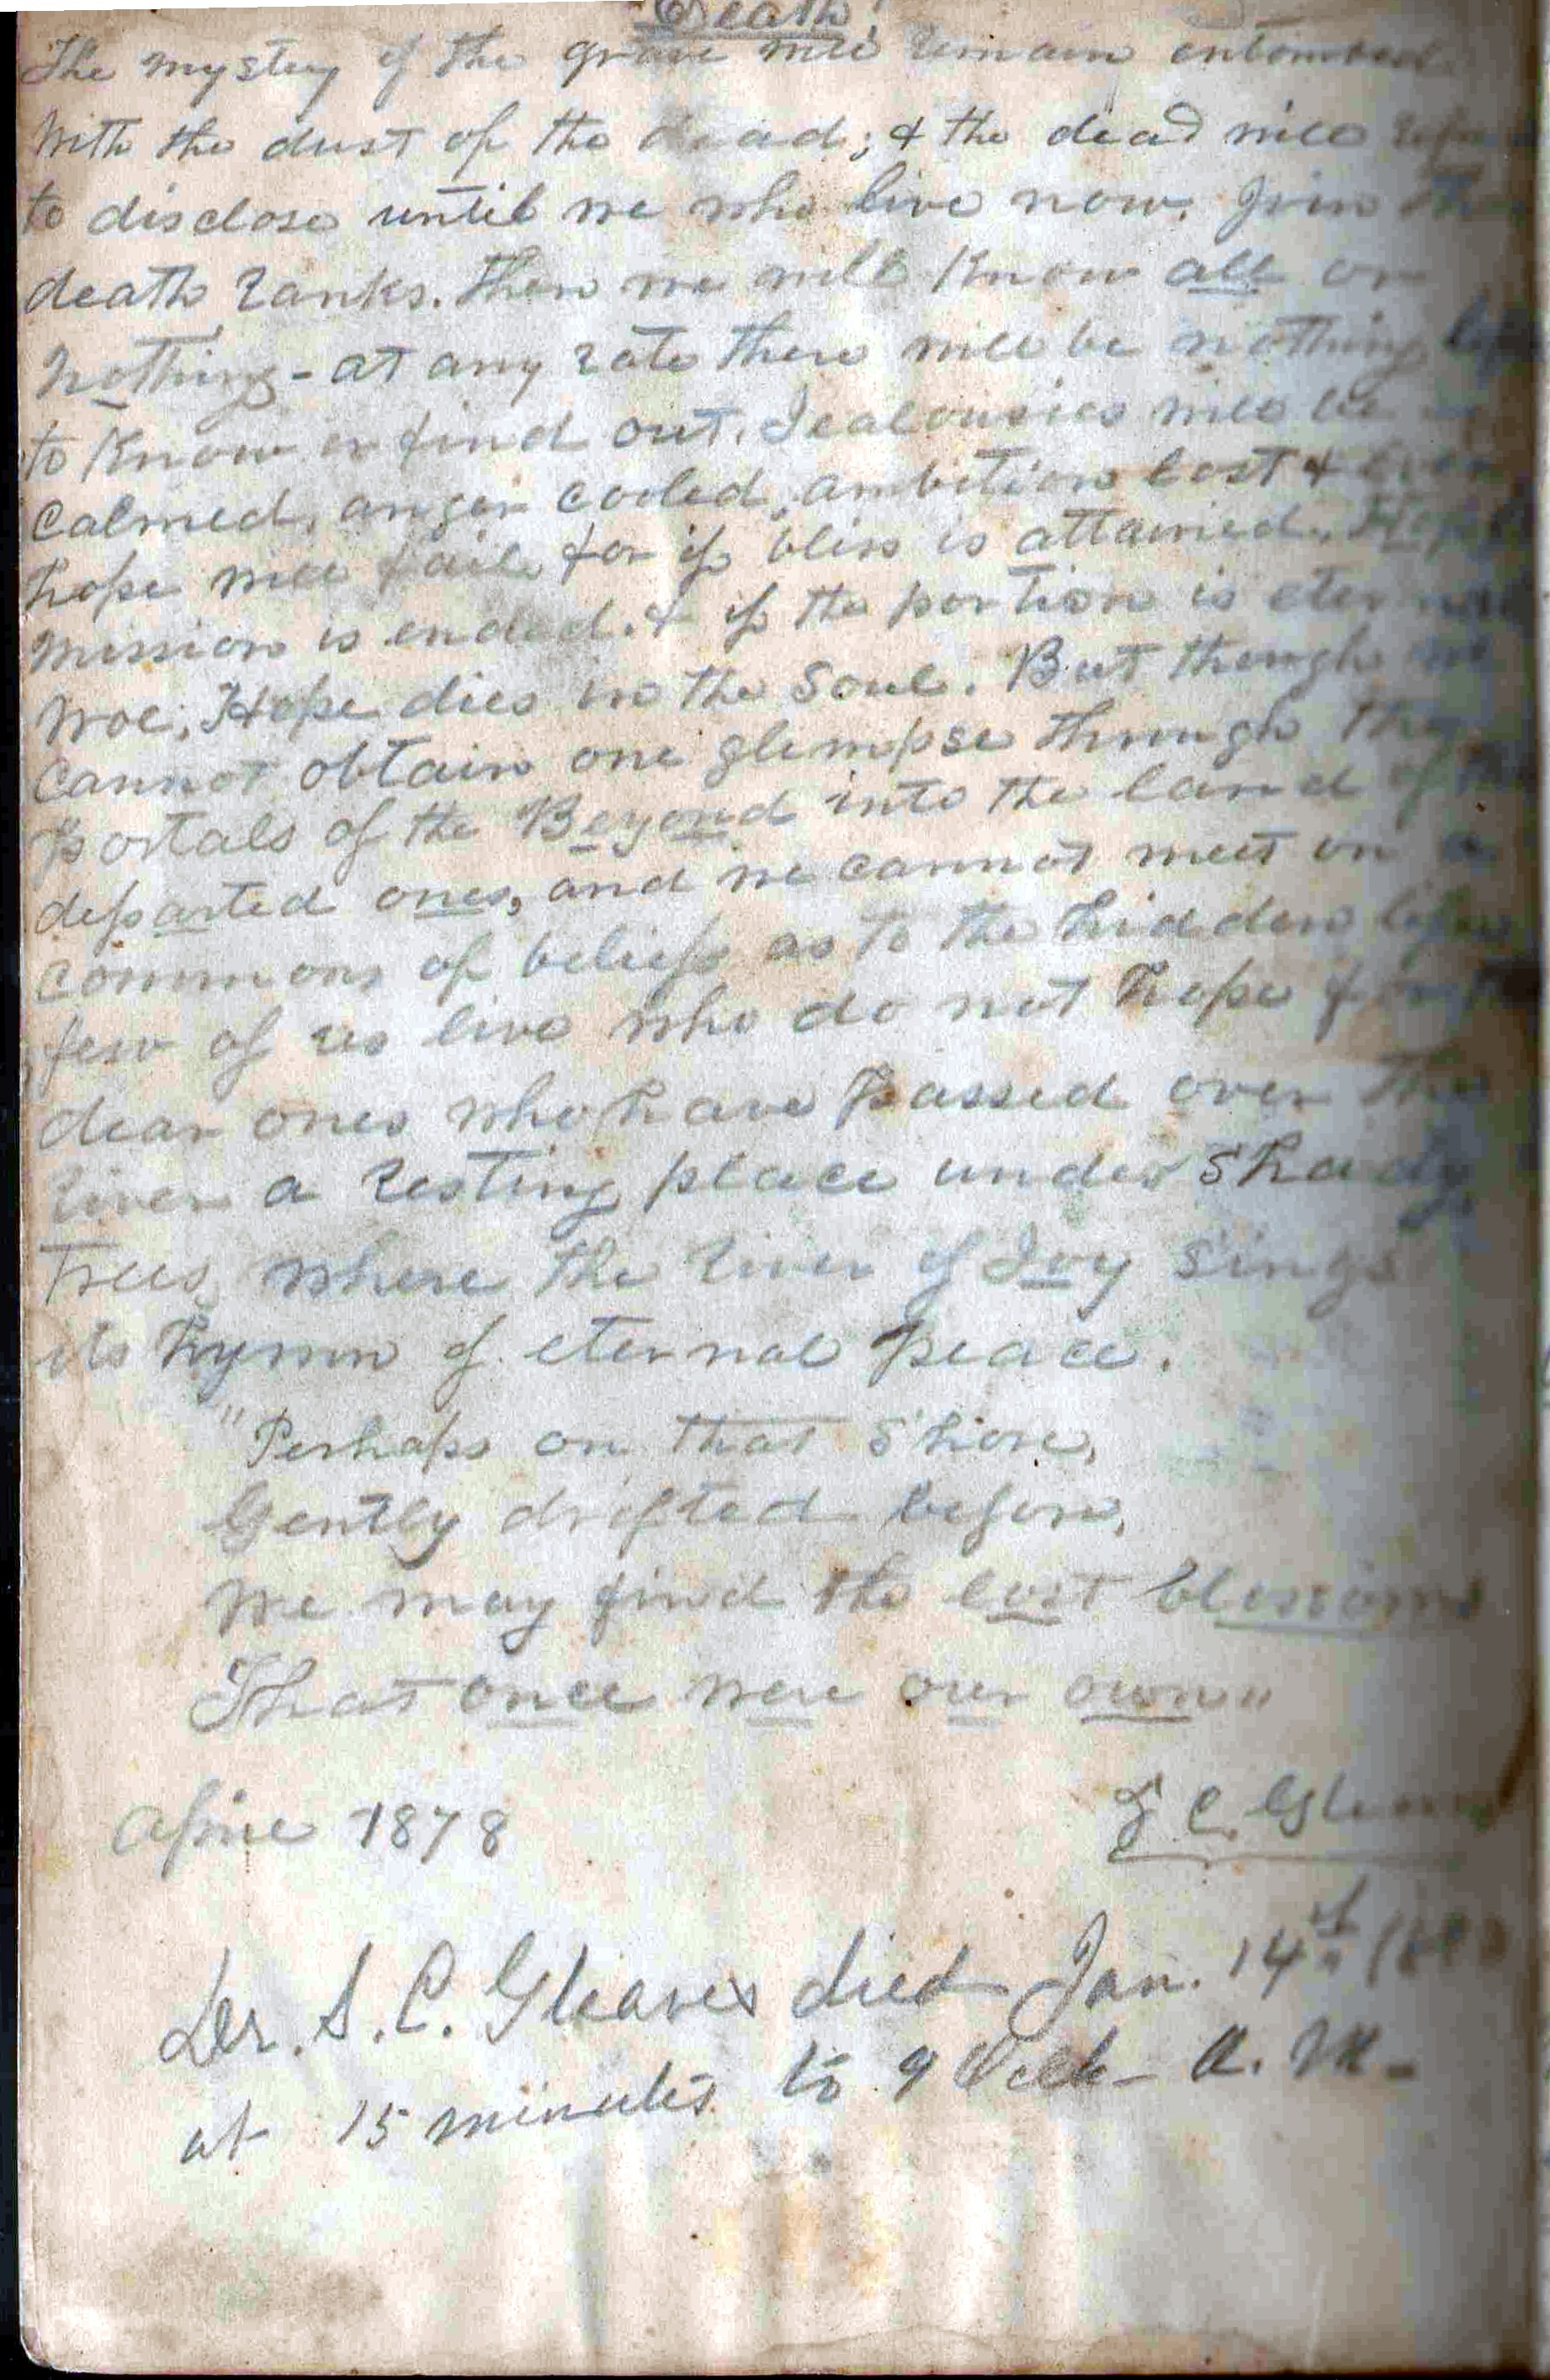 Death!
The mystery of the grave will remain entombed
With the dust of the dead; & the dead will
to disclose until we who live now, Join the
death ranks. Then we will Know all or
Nothing - at any rate there will be nothing
to Know or find out. Jealousies will be
Calmed, anger cooled, ambition lost & even
hope will fail, for if bliss is attained, Hope's
Mission is ended. & if the portion is eternal
Woe, Hope dies in the Soul. But though we
Cannot obtain one glimpse through the
Portals of the Beyond into the land of the
departed ones, and we cannot meet on a
common of belief as to the hidden life
few of us live who do not hope for the
dear ones who have passed over the
river a resting place under Shady
Trees, where the river of Joy Sings
its hymn of eternal peace.
"Perhaps on that Shore,
Gently drifted before,
We may find the lost blossoms
That once were our own"
April 1878
S C. Gleaves
Dr. S. C. Gleaves died Jan. 14th
at 15 minutes to 9 Oclk - A. M -